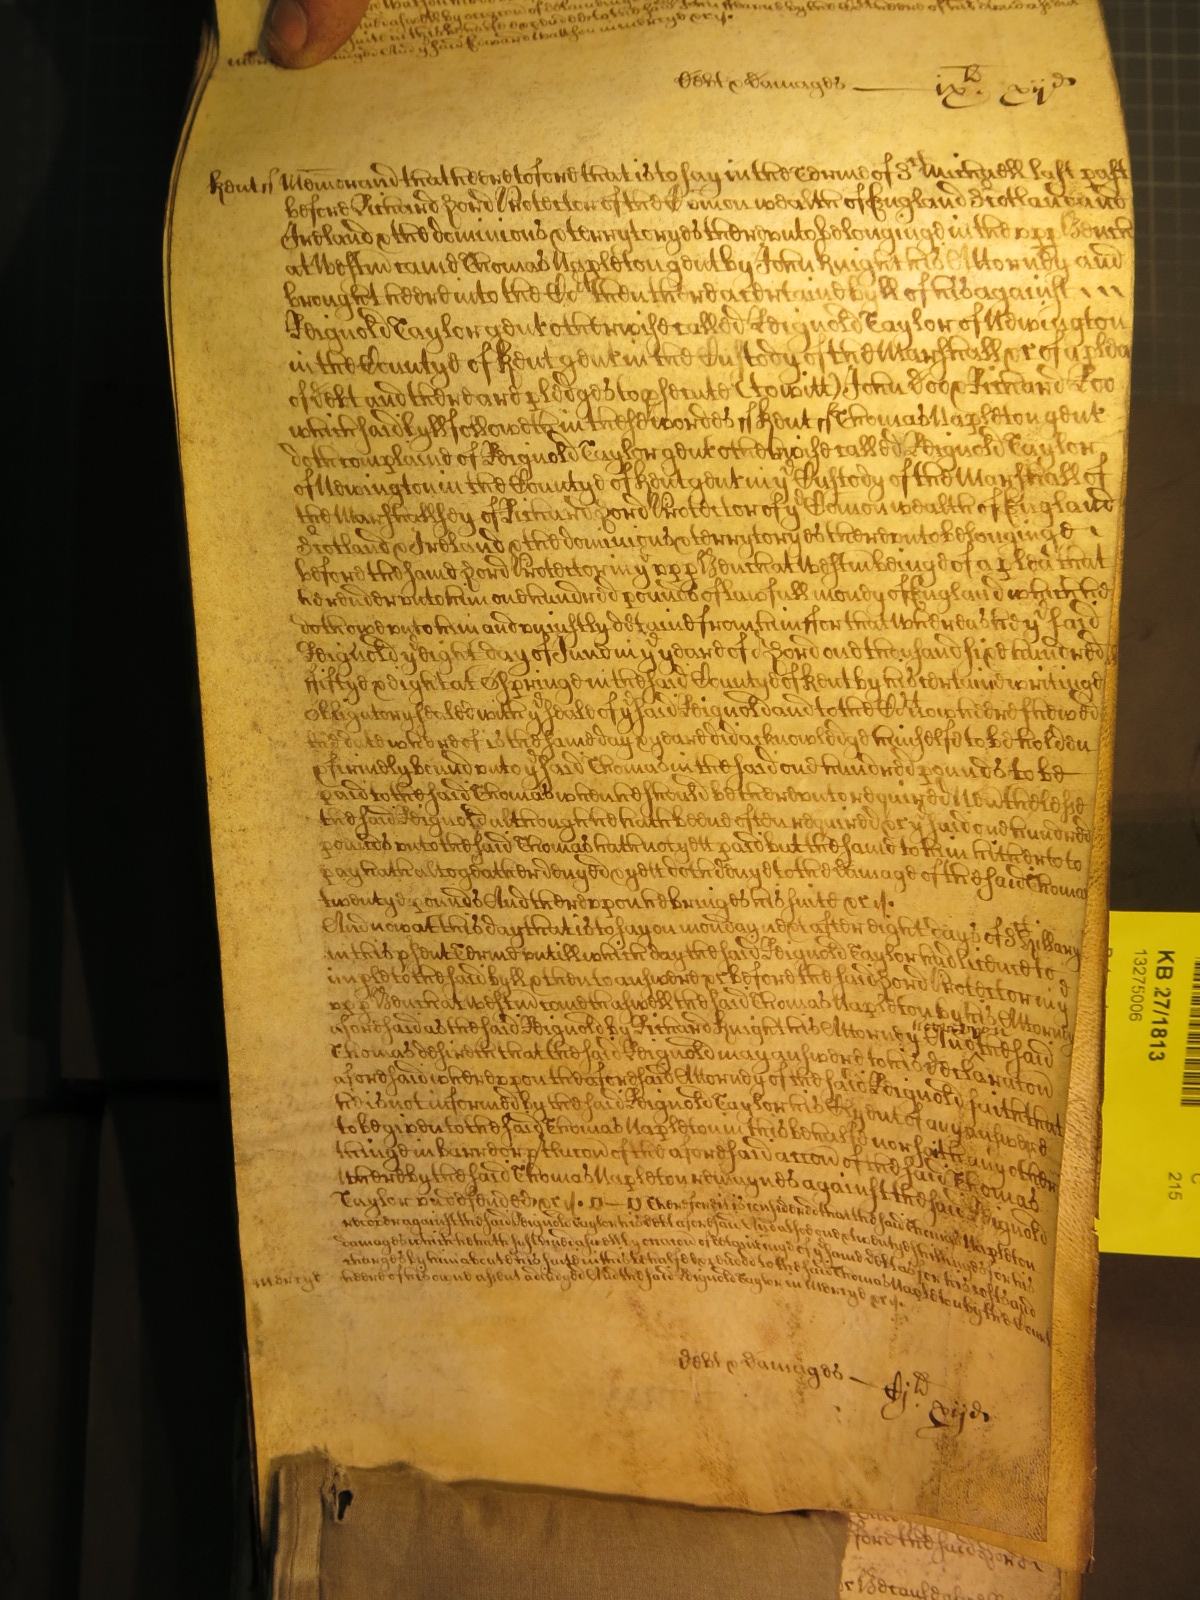 Debt & damages ixli xijd
Kent ss Memorand that heretofore that is to say in the Terme of St Michaell last past
before Richard Lord Protector of the Comon wealth of England Scotland and
Ireland & the dominions & terrytoryes thereunto belonginge in the upp Bench
at Westm came Thomas Napleton gent by John Knight his Attorney and
brought heere into the Co{rt} then there a certaine byll of his against
Reignold Taylor gent otherwise called Reignold Taylor of Newington
in the Countye of Kent gent in the Custody of the Marshall &c of a plea
of debt and there are pledges to psecute (to witt) John Doe & Richard Roo
which said byll followeth in these wordes ss Kent ss Thomas Napleton gent
doth complaine of Reignold Taylor gent otherwise called Reignold Taylor
of Newington in the Countye of Kent gent in ye Custody of the Marshall of
the Marshallsey of Richard Lord Protector of ye Comon wealth of England
Scotland & Ireland & the dominions & terrytoryes thereunto belonginge
before the same Lord Protector in ye upp Bench at Westm beinge of a plea that
he render unto him one hundred pounds of lawfull money of England which he
doth owe unto him and uniustly detaine from him ffor that whereas he ye said
Reignold ye eight day of June in ye yeare of Lord one thousand sixe hundred
fiftye & eight at Ospringe in the said Countye of Kent by his certaine writinge
obligatory sealed with ye seale of ye said Reignold and to the Cort now heere shewed
the date whereof is the same day & yeare did acknowledge himselfe to be holden
& firmely bound unto ye said Thomas in the said one hundred pounds to be
paid to the said Thomas when he should be thereunto required Neverthelesse
the said Reignold although he hath beene often required &c ye said one hundred
pounds unto the said Thomas hath not yett paid but the same to him hitherto to
pay hath altogeather denyed & yett doth denye to the damage of the said Thomas
twentye pounds And thereuppon he bringes his suite &c
And now at this day that is to say on monday next after eight dayes of St Hillary
in this psent Terme untill which day the said Reignold Taylor had licence to
imple to the said byll & then to answere &c before the said Lord Protector in ye
upp Bench at Westm cometh aswell the said Thomas Napleton by his Attorney
aforesaid as the said Reignold by Richard Knight his Attorney And the said
Thomas desireth that the said Reignold may answere to his declaracon
aforesaid whereuppon the aforesaid Attorney of the said Reignold saith that
he is not informed by the said Reignold Taylor his Clyent of any answeare
to be given to the said Thomas Napleton in this behalfe nor saith any other
thinge in barre or pclucon of the aforesaid accon of the said Thomas
whereby the said Thomas Napleton remaynes against the said Reignold
Taylor undefended &c Therefore it is considered that the said Thomas Napleton
recover against the said Reignold Taylor his debt aforesaid And also one & twentye shillinges for his
damages which he hath susteined aswell by occacon of detayninge of ye same debt as for his costs and
charges by him about his suite in this behalfe expended to the said Thomas Napleton by the Court
heere of his owne assent adiudged And the said Reignold Taylor in Mercye &c
Mercye
Debt & damages
xijd
KB 27/1813
13275006
215